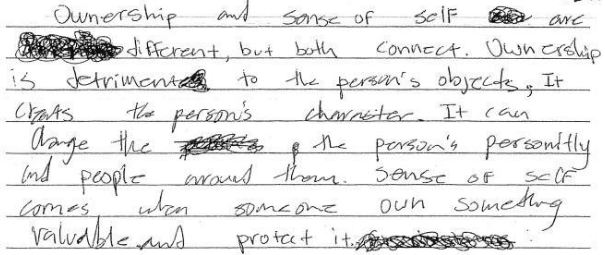 Ownership and sense of self are
different, but both connect. Ownership
is detriment to the person's objects, It
creats the person's character. It can
change the the person's personitly
and people around them. Sense of self
comes when someone own something
valuable and protect it.